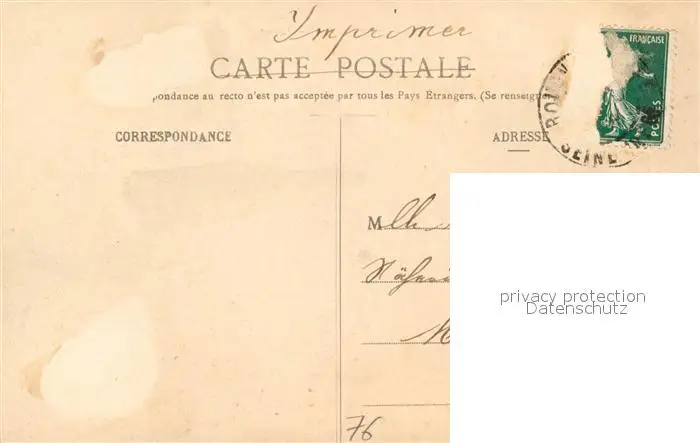 Imprimer
CARTE POSTALE
pondance au recto n'est pas acceptée par tous les Pays Étrangers. (Se renseign
CORRESPONDANCE
ADRESSE
FRANÇAISE
POSTES
ROU
SEINE
M lle
privacy protection
Datenschutz
76